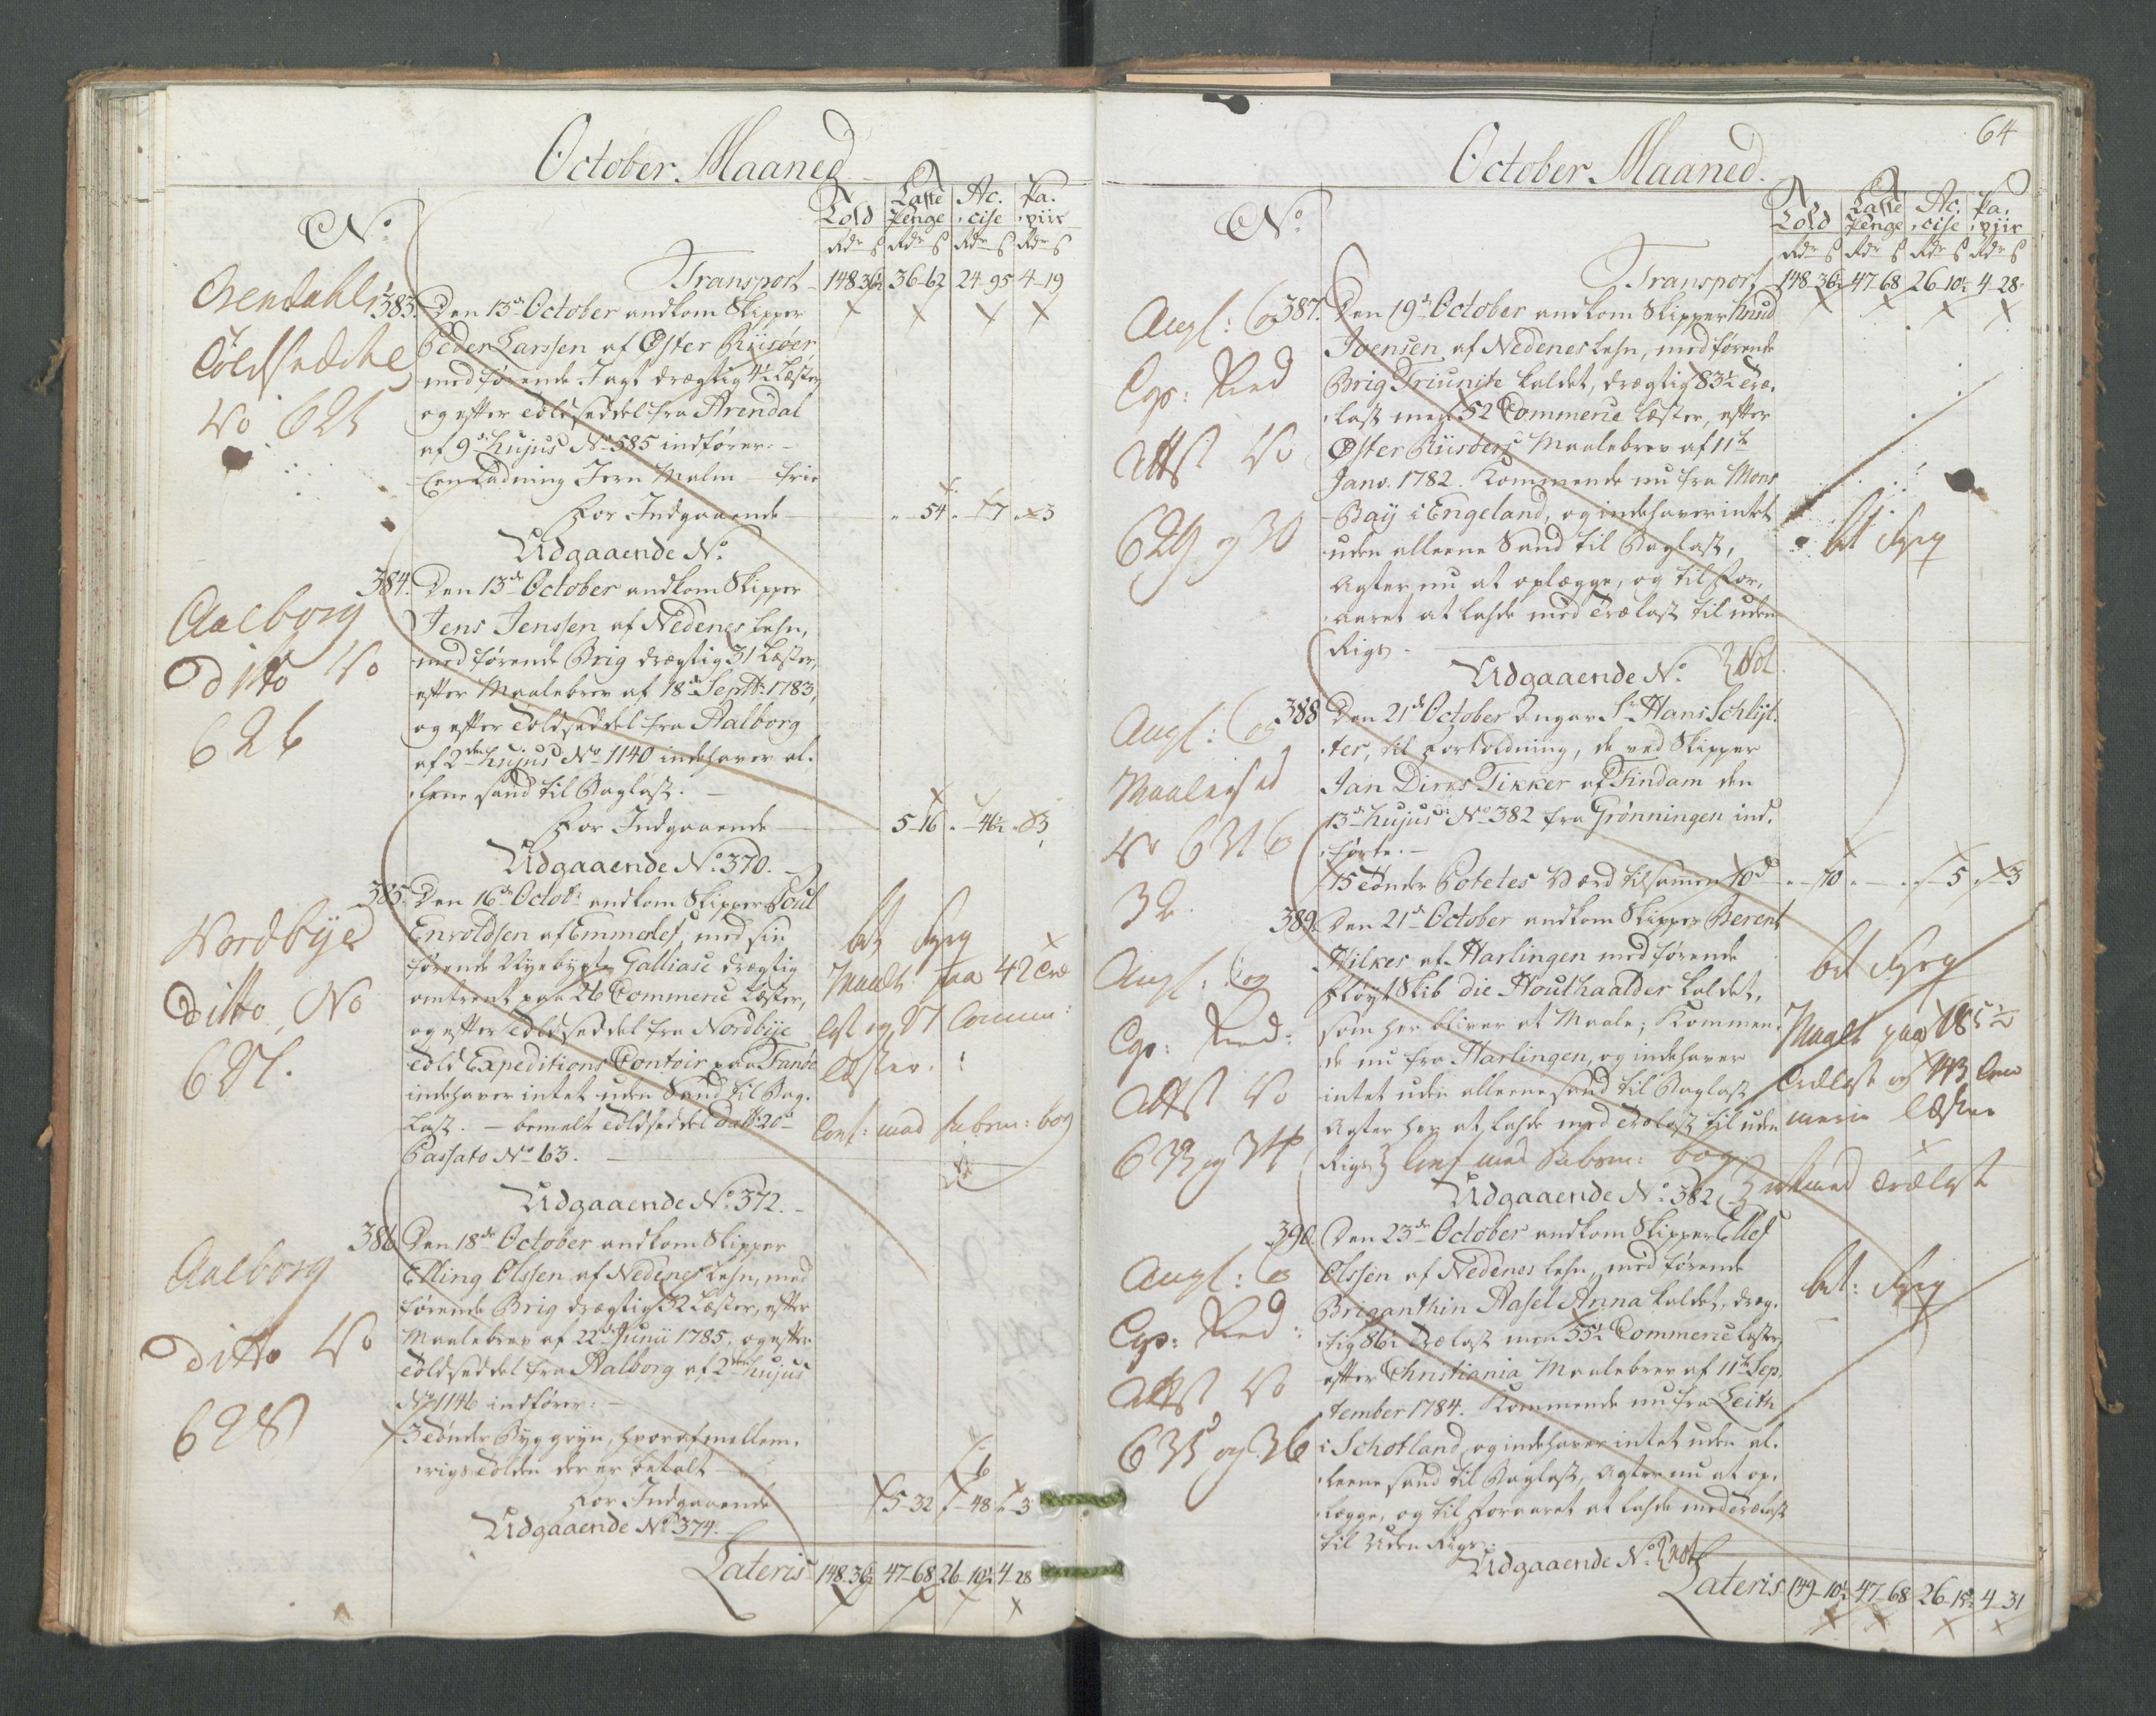 October Maaned
No
Told
Laste Penge
Ac.cise
Pa.piir
Rdr ß Rdr ß Rdr ß Rdr ß
Transport 148-36½ 36-62 24-95 4-19
Arendahls
Toldseddel
No 625
383. Den 13de October ankom Skipper
Peder Larssen af Øster Riisøer
medførende Jagt drægtig 4½ Læster
og efter Toldseddel fra Arendal
af 9de hujus No 585 indfører:
Een Ladning Jern Malm - frie
For Indgaaende - 54 - 7 - 3
Udgaaende No
Aalborg
Ditto No
626
384. Den 13de October ankom Skipper
Jens Jenssen af Nedenes Lehn,
med førende Brig drægtig 31 Læster,
efter Maalebrev af 18de Septb: 1783,
og efter Toldseddel fra Aalborg
af 2den hujus No 1140 indehaver al-
lene sand til Baglast.
For Indgaaende 5-16 - 46½ - 3
Udgaaende No 370.
Nordbye
Ditto No
627.
385. Den 16de Octob: ankom Skipper Poul
Envoldsen af Emmerlef, med sin
førende Nyebygte Galliase drægtig
omtrent paa 26 Commerce Læster,
og efter Toldseddel fra Nordbye
Told Expeditions Contoir paa Fanøe
indehaver intet uden Sand til Bag-
Last. - bemelte Toldseddel dat: 20de
Passato No 63.
Maalt paa 42 Træ
Læster.
Conf: med
Udgaaende No 372.
Aalborg
Ditto No
628
386 Den 18de October ankom Skipper
Elling Olssen af Nedenes Lehn, med
førende Brig drægtig 32 Læster, efter
Maalebrev af 22de Junii 1785, og efter
Toldseddel fra Aalborg af 2den hujus
No 1146 indfører:
3 Tønder Byggryn, hvoraf mellem-
rigs Tolden der er betalt - 6
For Indgaaende 5-32 - 48 - 3
Udgaaende No 374.
Lateris 148-36½ 47-68 26-10½ 4-28
64
October Maaned.
No
Told
Laste Penge
Ac.cise
Pa.piir
Rdr ß Rdr ß Rdr ß Rdr ß
Transport 148-36½ 47-68 26-10½ 4-28
Angl: og
Cgo: Reed
Attst No
629 og 30
387. Den 19de October ankom Skipper Knud
Joensen af Nedenes Lehn, med førende
Brig Triunite kaldet, drægtig 83½ Træ-
last men 52 Commerce Læster, efter
Øster Riisøers Maalebrev af 11te
Janv. 1782. Kommende nu fra Mons
Bay i Engeland, og indehaver intet
uden alleene Sand til Baglast,
Agter nu at oplægge, og til For-
aaret at lade med Trælast til uden
Rigs.
Udgaaende No
Angl: og
Maalersed
No 631 og
32
388 Den 21de October Angav Sr Hans Schlyt-
ter, til Fortoldning, de ved Skipper
Jan Dirks Tikker af Tindam den
13de hujus No 382 fra Grønningen ind-
førte.
15 Tønder Potetes Værd tilsammen 10d - 70 - - 5 - 3
Angl: og
Cgo: Reed:
Attst No
633 og 34
389. Den 21de October ankom Skipper Berent
Hilkes af Harlingen med førende
Fløyt Skib die Houthaalder kaldet,
som her bliver at Maale; Kommen-
de nu fra Harlingen, og indehaver
intet uden alleene sand til Baglast
Agter her at lade med Trælast til uden
Rigs
Maalt paa 185½
Trælast og 113 Com
mercie Læster
Udgaaende No 382 med Trælast
Angl: og
Cgo: Reed:
Attst No
635 og 36
390. Den 23de October ankom Skipper Ellef
Olssen af Nedenes Lehn, med førende
Briganthin Aasel Anna kaldet, dræg-
tig 86½ Trælast men 55½ Commerce Læster,
efter Christiania Maalebrev af 11te Sep-
tember 1784. Kommende nu fra Leith
i Schotland, og indehaver intet uden al-
leene sand til Baglast, Agter nu at op-
lægge, og til Foraaret at lade med Trælast
til Uden Rigs.
Udgaaende No
Lateris 149-10½ 47-68 26-15½ 4-31